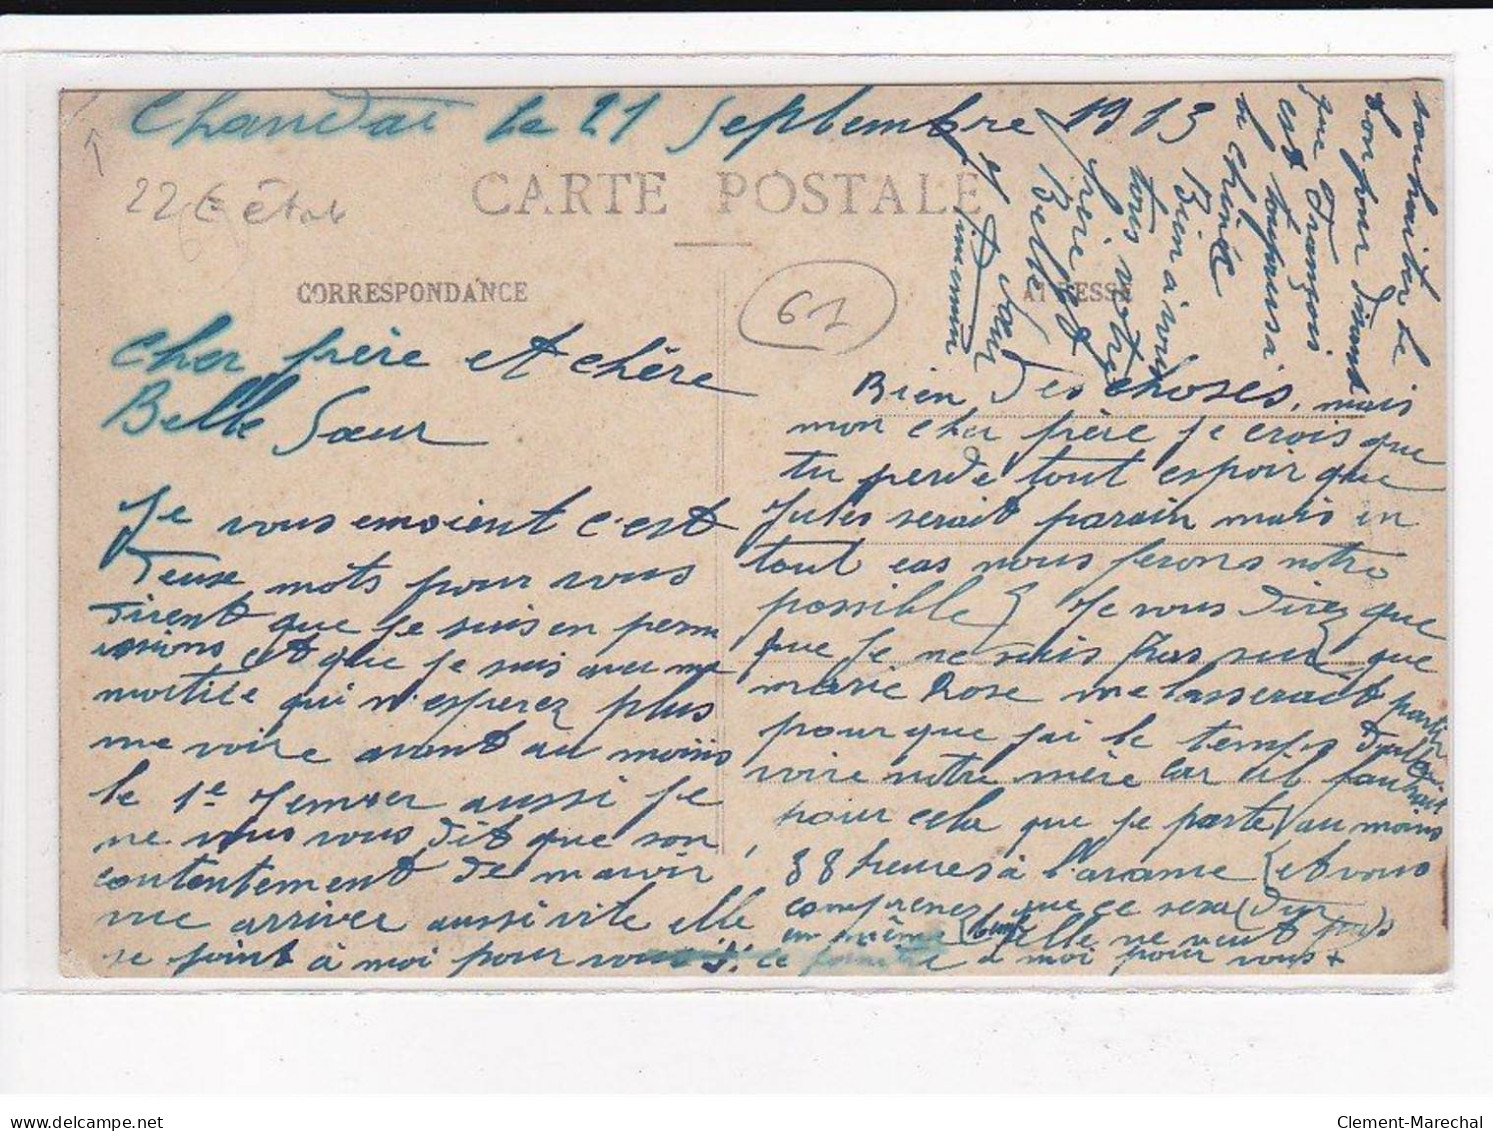 Chandai le 21 Septembre 1913
22 € état
CARTE POSTALE
CORRESPONDANCE
ADRESSE
61
Cher frère et chère
Belle Sœur
Je vous envoient c'est
deux mots pour vous
dirent que je suis en perm
issions et que je suis avec ma
moitiée qui n'esperez plus
me voire avant au moins
le 1e Jenvier aussi je
ne vous vous dit que son
contentement de mavoir
vue arriver aussi vite elle
se joint à moi pour vous
Bien des choses, mais
mon cher frère je crois que
tu perde tout espoir que
Jules serait parain mais en
tout cas nous ferons notre
possible Je vous direz que
que je ne suis pas sur que
marie Rose me lasserait partir
pour que jai le temps d'aller
voire notre mère car il faudrait
pour cela que je parte au moins
88 heures à l'avance et vous
comprenez que ce sera dur
en même elle ne veut pas
ce joindre a moi pour vous
souhaiter le
bonjour
que François
est toujours a
a
Bien a vous
tous votre
frère et
Belle
Sœur